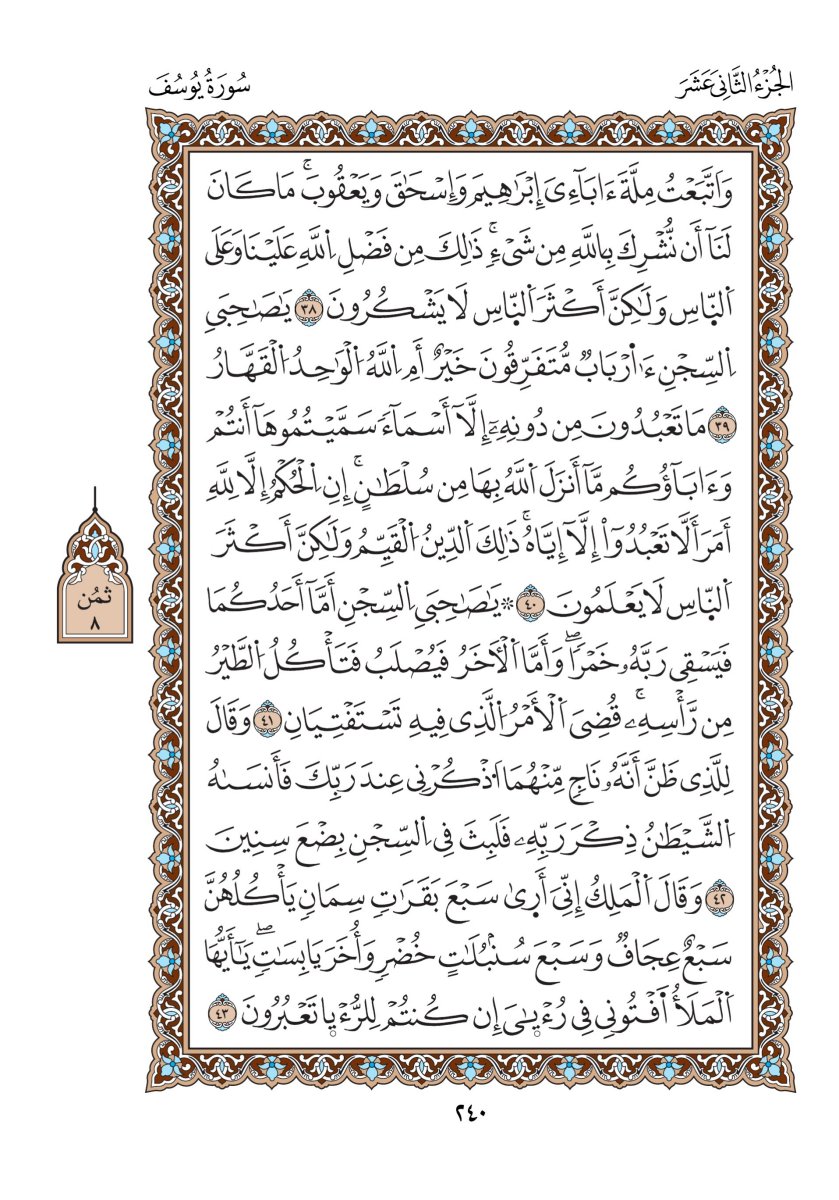 الجُزْءُ الثَّانِيَ عَشَرَ
سُورَةُ يُوسُفَ
وَاتَّبَعْتُ مِلَّةَ ءَابَآءِىٓ إِبْرَٰهِيمَ وَإِسْحَٰقَ وَيَعْقُوبَۚ مَا كَانَ
لَنَآ أَن نُّشْرِكَ بِاللَّهِ مِن شَىْءٍۚ ذَٰلِكَ مِن فَضْلِ اِ۬للَّهِ عَلَيْنَا وَعَلَى
اَ۬لنَّاسِ وَلَٰكِنَّ أَكْثَرَ اَ۬لنَّاسِ لَا يَشْكُرُونَ ٣٨ يَٰصَٰحِبَيِ
اِ۬لسِّجْنِ ءَا۬رْبَابٌ مُّتَفَرِّقُونَ خَيْرٌ أَمِ اِ۬للَّهُ اُ۬لْوَٰحِدُ اُ۬لْقَهَّارُ
٣٩ مَا تَعْبُدُونَ مِن دُونِهِۦٓ إِلَّآ أَسْمَآءً سَمَّيْتُمُوهَآ أَنتُمْ
وَءَابَآؤُكُم مَّآ أَنزَلَ اَ۬للَّهُ بِهَا مِن سُلْطَٰنٍۚ إِنِ اِ۬لْحُكْمُ إِلَّا لِلَّهِ
أَمَرَ أَلَّا تَعْبُدُوٓاْ إِلَّآ إِيَّاهُۚ ذَٰلِكَ اَ۬لدِّينُ اُ۬لْقَيِّمُ وَلَٰكِنَّ أَكْثَرَ
اَ۬لنَّاسِ لَا يَعْلَمُونَ ٤٠ ۞ يَٰصَٰحِبَيِ اِ۬لسِّجْنِ أَمَّآ أَحَدُكُمَا
فَيَسْقِى رَبَّهُۥ خَمْرًاۖ وَأَمَّا اَ۬لْأٓخَرُ فَيُصْلَبُ فَتَأْكُلُ اُ۬لطَّيْرُ
مِن رَّأْسِهِۦۚ قُضِىَ اَ۬لْأَمْرُ اُ۬لَّذِى فِيهِ تَسْتَفْتِيَانِ ٤١ وَقَالَ
لِلَّذِى ظَنَّ أَنَّهُۥ نَاجٍ مِّنْهُمَا اَ۟ذْكُرْنِى عِندَ رَبِّكَ فَأَنسَىٰهُ
اُ۬لشَّيْطَٰنُ ذِكْرَ رَبِّهِۦ فَلَبِثَ فِى اِ۬لسِّجْنِ بِضْعَ سِنِينَ
٤٢ وَقَالَ اَ۬لْمَلِكُ إِنِّىَ أَر۪ىٰ سَبْعَ بَقَرَٰتٍ سِمَانٍ يَأْكُلُهُنَّ
سَبْعٌ عِجَافٌ وَسَبْعَ سُنۢبُلَٰتٍ خُضْرٍ وَأُخَرَ يَابِسَٰتٍۖ يَٰٓأَيُّهَا
اَ۬لْمَلَأُ اَ۬فْتُونِى فِى رُءْيٰ۪ىَ إِن كُنتُمْ لِلرُّءْي۪ا تَعْبُرُونَ ٤٣
ثُمُن
٨
٢٤٠